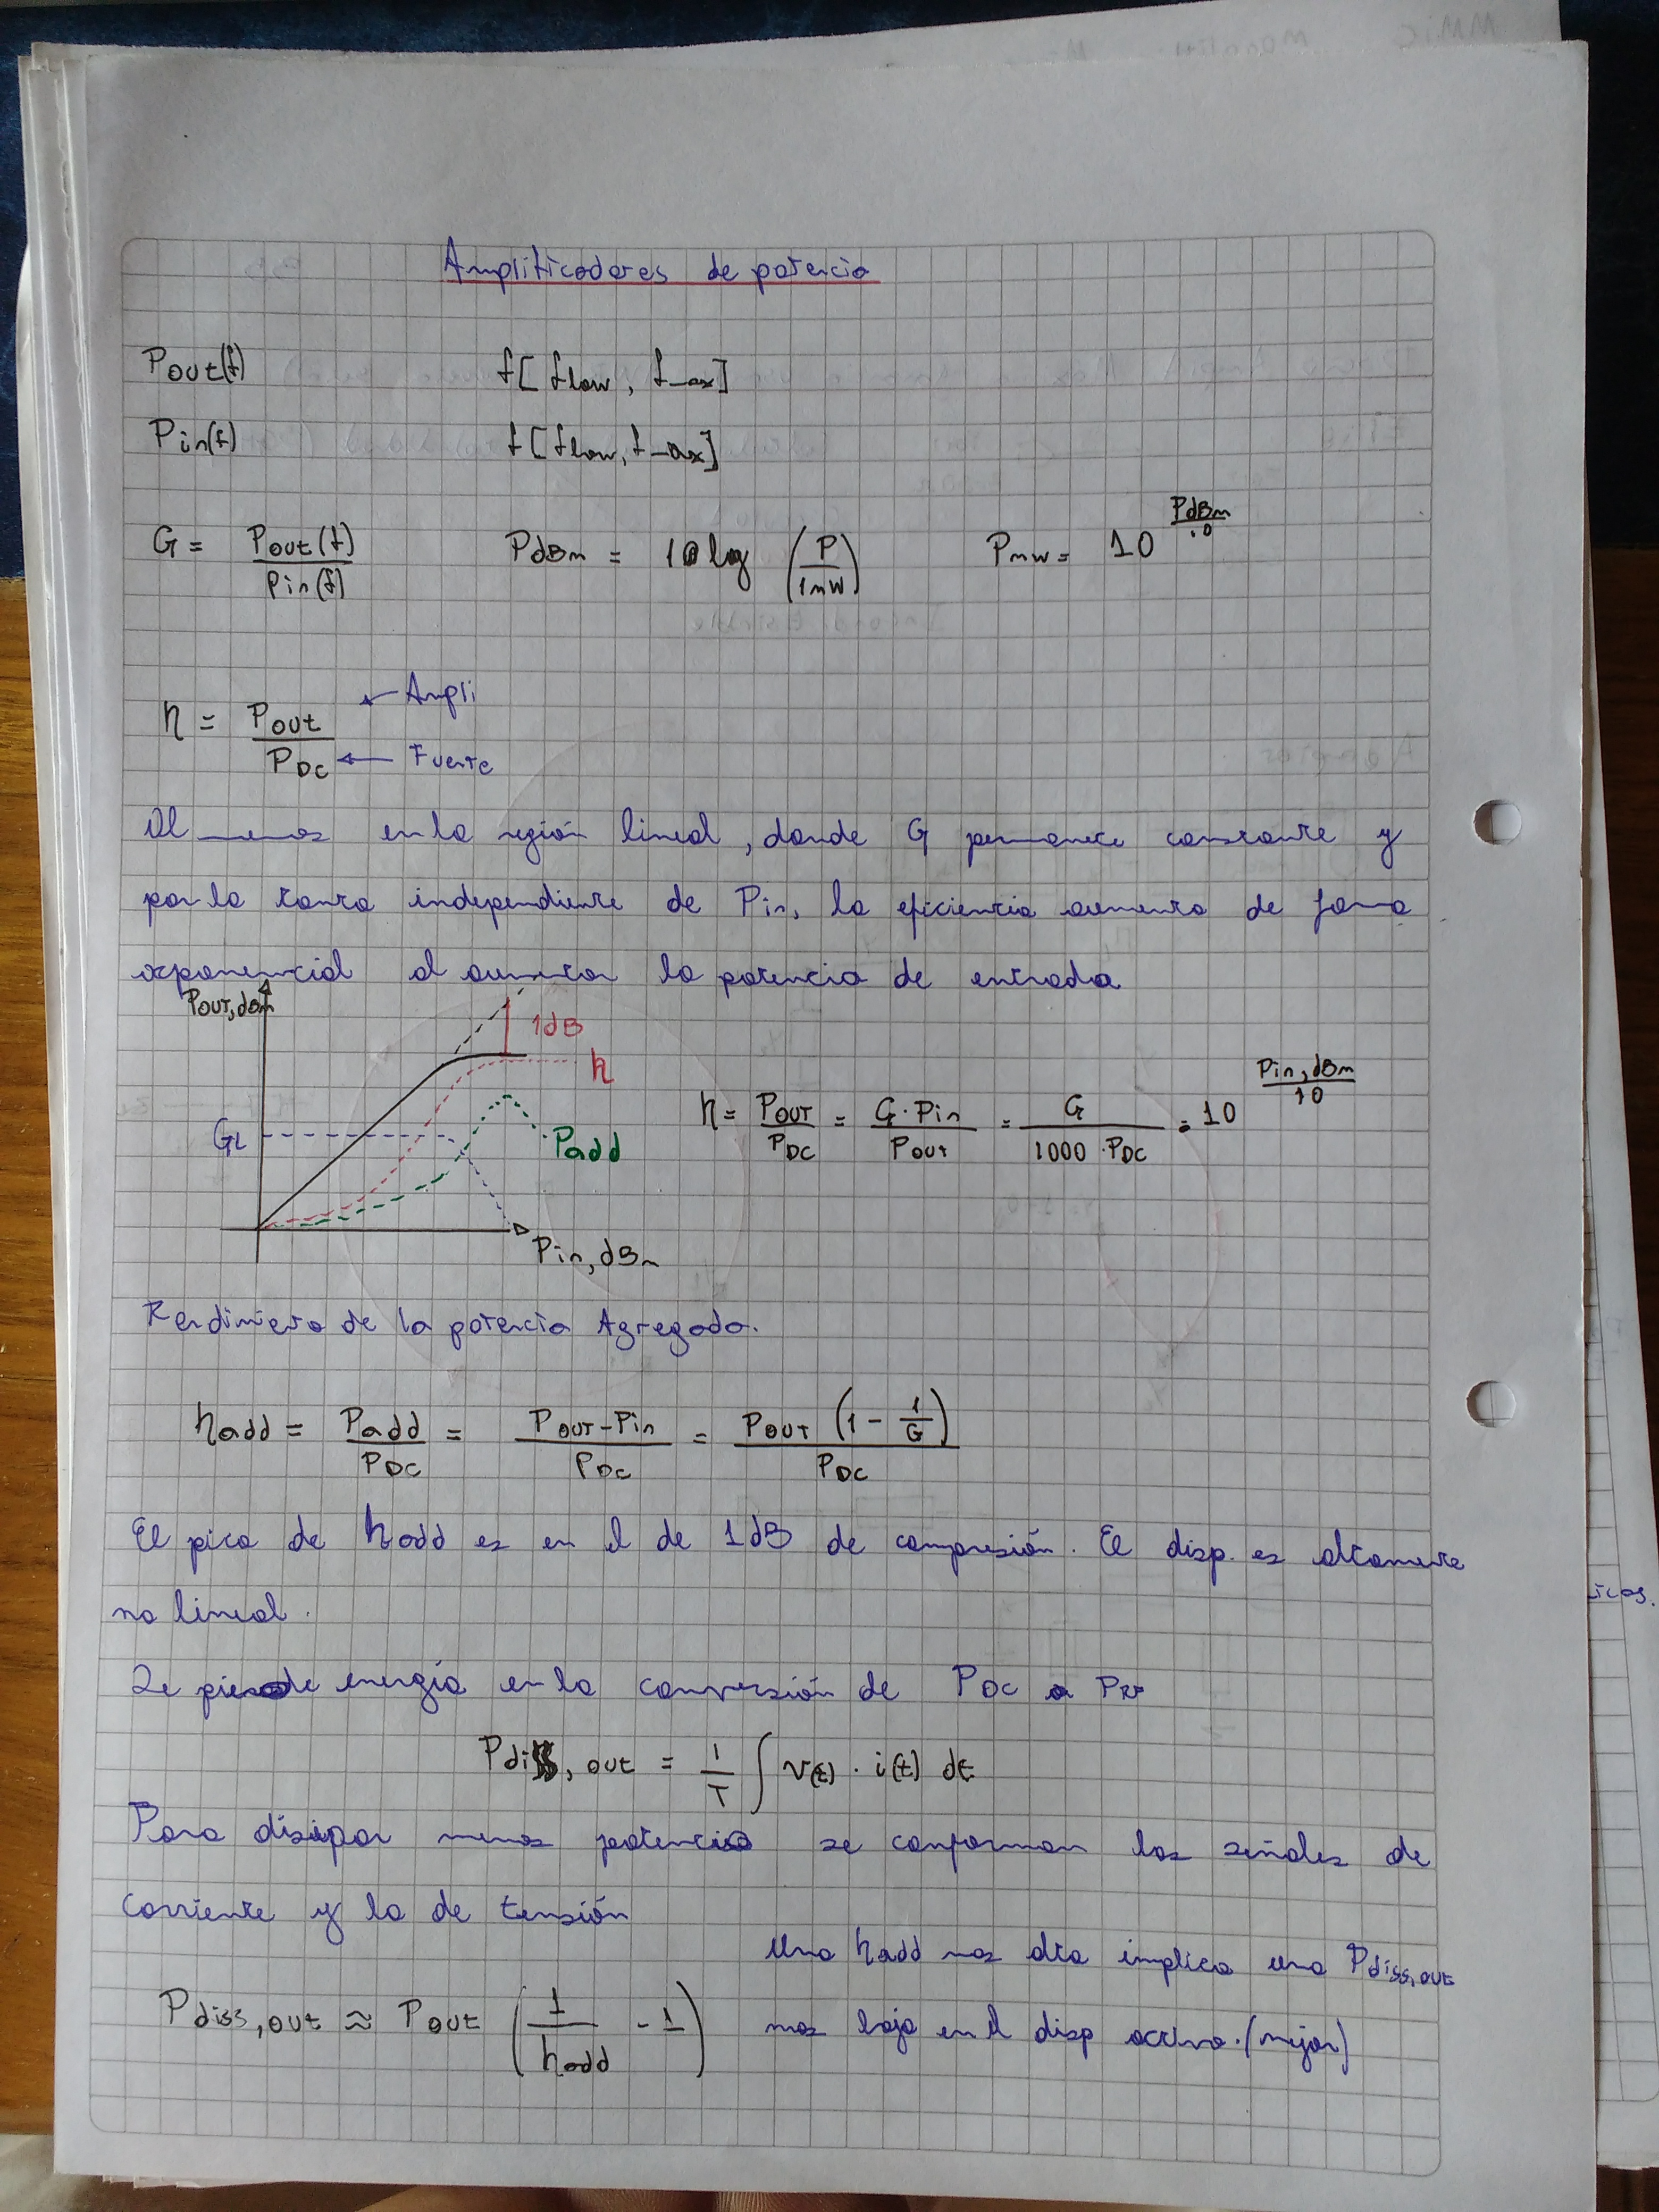 Amplificadores de potencia
Pout(f) f[flow, fmax]
Pin(f) f[flow, fmax]
G = Pout(f) / Pin(f) PdBm = 10 log (P / 1mW) Pmw = 10^(PdBm / 10)
η = Pout / PDC ← Ampli ← Fuente
Al menos en la región lineal, donde G permanece constante y
por lo tanto independiente de Pin, la eficiencia aumenta de forma
exponencial al aumentar la potencia de entrada.
Pout,dBm
1dB
η
GL
Padd
Pin,dBm
η = Pout / PDC = G·Pin / Pout = G / 1000·PDC · 10^(Pin,dBm / 10)
Rendimiento de la potencia Agregada.
ηadd = Padd / PDC = Pout-Pin / PDC = Pout (1 - 1/G) / PDC
El pico de ηadd es en el de 1dB de compresión. El disp. es altamente
no lineal.
Se pierde energía en la conversión de PDC a PRF
Pdiss,out = 1/T ∫ v(t) · i(t) dt
Para disipar menos potencia se conforman las señales de
corriente y la de tensión
Una ηadd mas alta implica una Pdiss,out
Pdiss,out ≈ Pout (1/ηadd - 1) mas baja en el disp activo. (mejor)
icas.